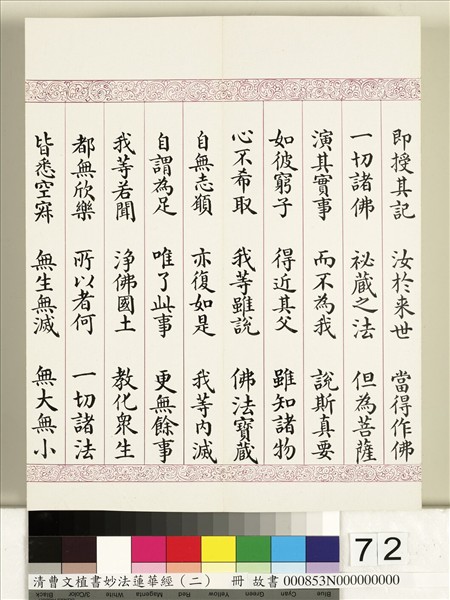 即授其記　汝於来世　當得作佛
一切諸佛　祕蔵之法　但為菩薩
演其實事　而不為我　說斯真要
如彼窮子　得近其父　雖知諸物
心不希取　我等雖說　佛法寶蔵
自無志願　亦復如是　我等內滅
自謂為足　唯了此事　更無餘事
我等若聞　淨佛國土　教化衆生
都無欣樂　所以者何　一切諸法
皆悉空寂　無生無滅　無大無小
72
清曹文植書妙法蓮華經（二）　冊 故書 000853N000000000
Black 3/Color White Magenta Red Yellow Green Cyan Blue